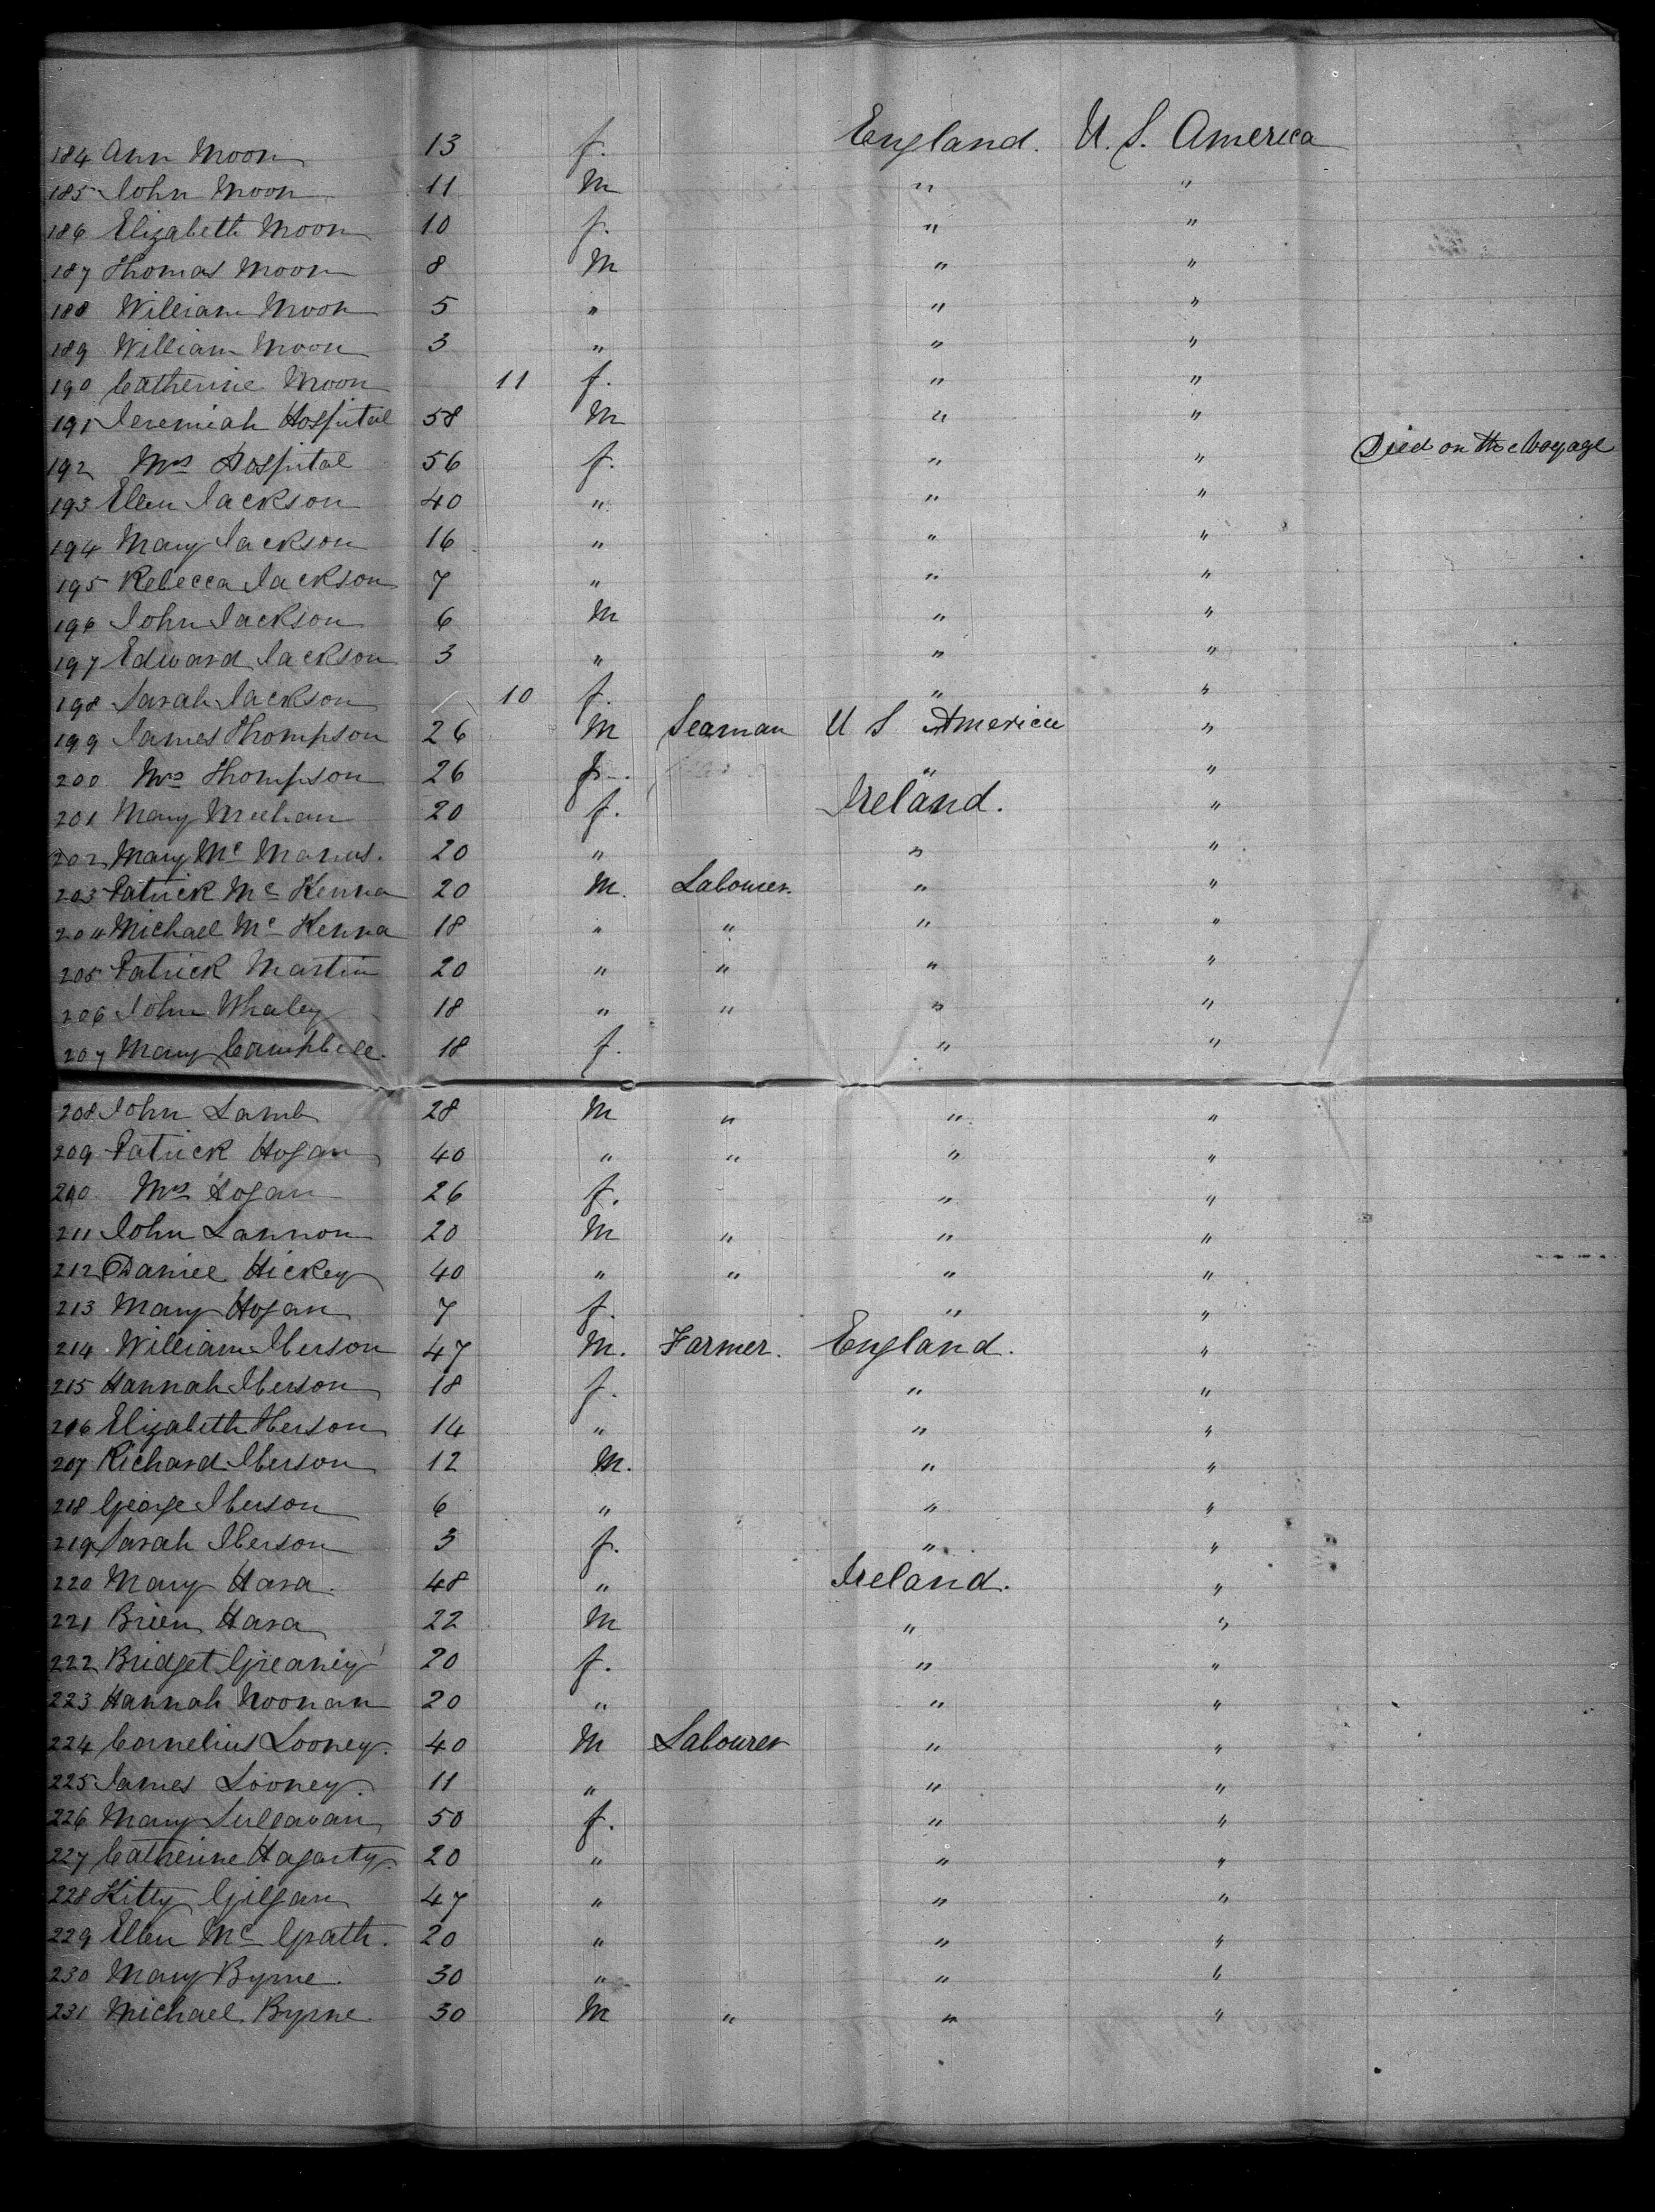 184 Ann Moon 13 f. England. U. S. America
185 John Moon 11 M " "
186 Elizabeth Moon 10 f. " "
187 Thomas Moon 8 M " "
188 William Moon 5 " " "
189 William Moon 3 " " "
190 Catherine Moon 11 f. " "
191 Jeremiah Hospital 58 M " "
192 Mrs Hospital 56 f. " " Died on the Voyage
193 Ellen Jackson 40 " " "
194 Mary Jackson 16 " " "
195 Rebecca Jackson 7 " " "
196 John Jackson 6 M " "
197 Edward Jackson 3 " " "
198 Sarah Jackson 10 f. " "
199 James Thompson 26 M Seaman U S America "
200 Mrs Thompson 26 f. " "
201 Mary Meehan 20 f. Ireland. "
202 Mary Mc Manus. 20 " " "
203 Patrick Mc Kenna 20 M. Labourer " "
204 Michael Mc Kenna 18 " " " "
205 Patrick Martin 20 " " " "
206 John Whaley 18 " " " "
207 Mary Campbell. 18 f. " "
208 John Lamb 28 M " " "
209 Patrick Hogan 40 " " " "
210 Mrs Hogan 26 f. " "
211 John Lannon 20 M " " "
212 Daniel Hickey 40 " " " "
213 Mary Hogan 7 f. " "
214 William Iberson 47 M. Farmer. England. "
215 Hannah Iberson 18 f. " "
216 Elizabeth Iberson 14 " " "
217 Richard Iberson 12 M. " "
218 George Iberson 6 " " "
219 Sarah Iberson 3 f. " "
220 Mary Hara. 48 " Ireland. "
221 Brien Hara 22 M " "
222 Bridget Greaney 20 f. " "
223 Hannah Noonan 20 " " "
224 Cornelius Looney. 40 M Labourer " "
225 James Looney. 11 " " "
226 Mary Sullavan 50 f. " "
227 Catherine Hagarty. 20 " " "
228 Kitty Gilgan 47 " " "
229 Ellen Mc Grath. 20 " " "
230 Mary Byrne. 30 " " "
231 Michael Byrne 30 M " " "